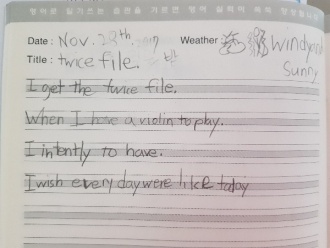 영어로 일기쓰는 습관을 기르면 영어 실력이 쑥쑥
Date : Nov. 28th. 2017 Weather Windy and
Sunny
Title : twice file.
I get the twice file.
When I have a violin to play.
I intently to have.
I wish every day were like today